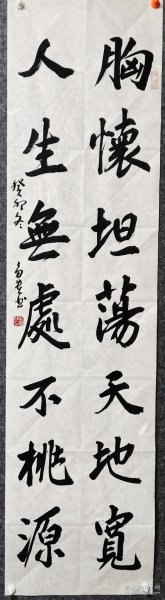 胸懷坦蕩天地寬
人生無處不桃源
癸卯冬